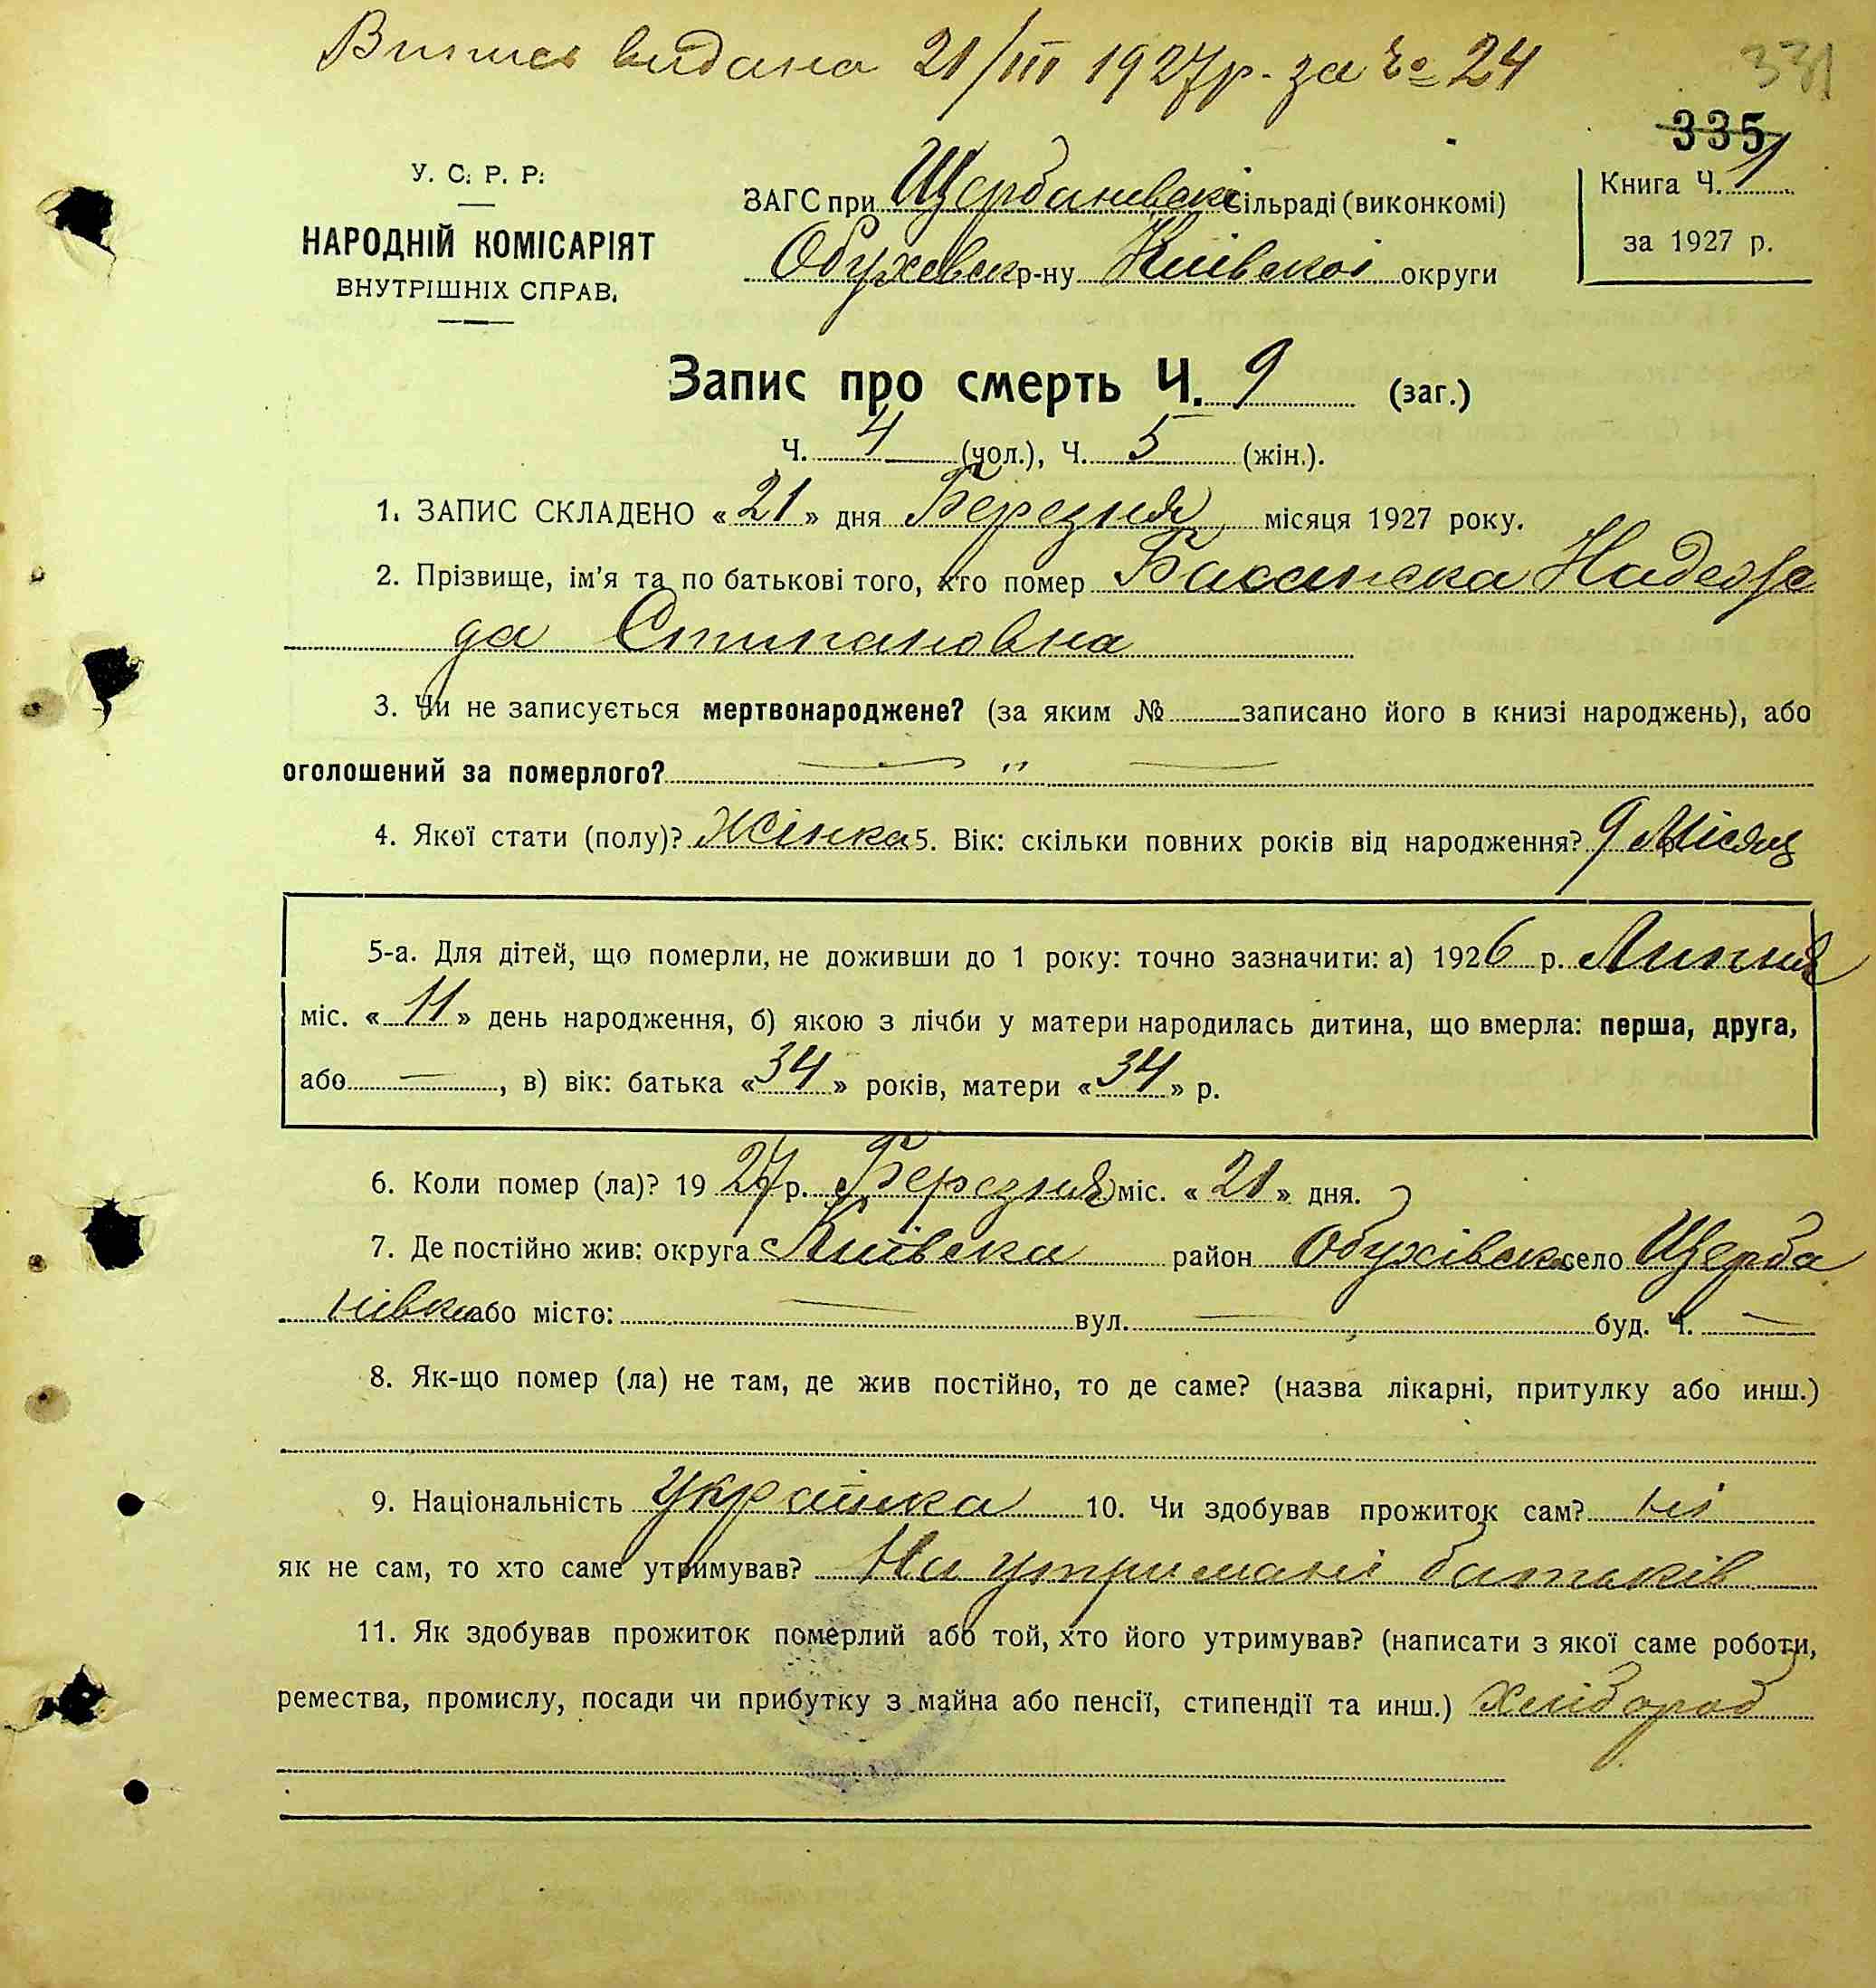 Випись видана 21/III 1927р. за № 24
331
335
У. С. Р. Р.
НАРОДНІЙ КОМІСАРІЯТ
ВНУТРІШНІХ СПРАВ.
ЗАГС при Щербанивскі сільраді (виконкомі)
Обуховск р-ну Київскоі округи
Книга Ч. 1
за 1927 р.
Запис про смерть Ч. 9 (заг.)
Ч. 4 (чол.), Ч. 5 (жін.).
1. ЗАПИС СКЛАДЕНО « 21 » дня Березня місяця 1927 року.
2. Прізвище, ім'я та по батькові того, хто помер Басанска Надеж
да Степановна
3. Чи не записується мертвонароджене? (за яким № записано його в книзі народжень), або
оголошений за померлого? — " —
4. Якої стати (полу)? Жінка 5. Вік: скільки повних років від народження? 9 Місяц
5-а. Для дітей, що померли, не доживши до 1 року: точно зазначити: а) 1926 р. Липня
міс. « 11 » день народження, б) якою з лічби у матери народилась дитина, що вмерла: перша, друга,
або —, в) вік: батька « 34 » років, матери « 34 » р.
6. Коли помер (ла)? 1927 р. Березня міс. « 21 » дня.
7. Де постійно жив: округа Київска район Обухівск село Щерба
нівка або місто: — вул. — буд. Ч. —
8. Як-що помер (ла) не там, де жив постійно, то де саме? (назва лікарні, притулку або инш.)
9. Національність Українка 10. Чи здобував прожиток сам? ні
як не сам, то хто саме утримував? На утримані батьків
11. Як здобував прожиток померлий або той, хто його утримував? (написати з якої саме роботи,
ремества, промислу, посади чи прибутку з майна або пенсії, стипендії та инш.) хлібороб